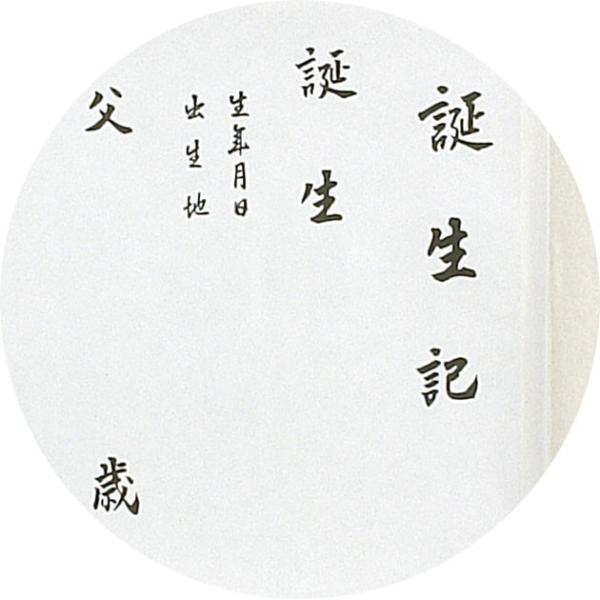 誕生記
誕生
生年月日
出生地
父 歳